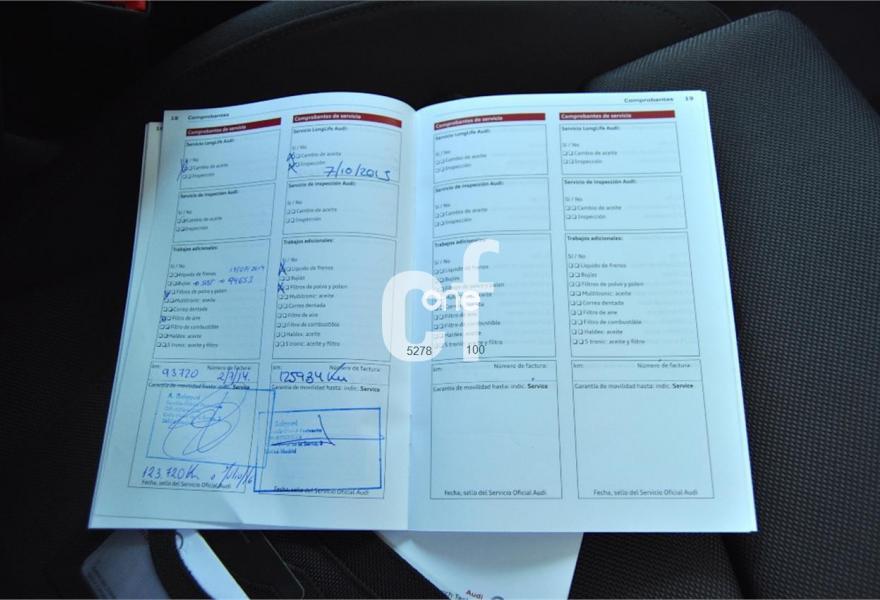 18 Comprobantes
Comprobantes de servicio
Servicio LongLife Audi:
Sí / No
Cambio de aceite
Inspección
Servicio de inspección Audi:
Sí / No
Cambio de aceite
Inspección
Trabajos adicionales:
Sí / No
Líquido de frenos
Bujías
Filtros de polvo y polen
Multitronic: aceite
Correa dentada
Filtro de aire
Filtro de combustible
Haldex: aceite
S tronic: aceite y filtro
km: 93720 Número de factura:
2/7/14.
Garantía de movilidad hasta: indic. Service
123.720 Km
Fecha, sello del Servicio Oficial Audi
Comprobantes de servicio
Servicio LongLife Audi:
Sí / No
Cambio de aceite
Inspección
7/10/2015
Servicio de inspección Audi:
Sí / No
Cambio de aceite
Inspección
Trabajos adicionales:
Sí / No
Líquido de frenos
Bujías
Filtros de polvo y polen
Multitronic: aceite
Correa dentada
Filtro de aire
Filtro de combustible
Haldex: aceite
S tronic: aceite y filtro
km: Número de factura:
125934 Km
Garantía de movilidad hasta: indic. Service
Madrid
Fecha, sello del Servicio Oficial Audi
Comprobantes 19
Comprobantes de servicio
Servicio LongLife Audi:
Sí / No
Cambio de aceite
Inspección
Servicio de inspección Audi:
Sí / No
Cambio de aceite
Inspección
Trabajos adicionales:
Sí / No
Líquido de frenos
Bujías
Filtros de polvo y polen
Multitronic: aceite
Correa dentada
Filtro de aire
Filtro de combustible
Haldex: aceite
S tronic: aceite y filtro
km: Número de factura:
Garantía de movilidad hasta: indic. Service
Fecha, sello del Servicio Oficial Audi
Comprobantes de servicio
Servicio LongLife Audi:
Sí / No
Cambio de aceite
Inspección
Servicio de inspección Audi:
Sí / No
Cambio de aceite
Inspección
Trabajos adicionales:
Sí / No
Líquido de frenos
Bujías
Filtros de polvo y polen
Multitronic: aceite
Correa dentada
Filtro de aire
Filtro de combustible
Haldex: aceite
S tronic: aceite y filtro
km: Número de factura:
Garantía de movilidad hasta: indic. Service
Fecha, sello del Servicio Oficial Audi
cf
one
5278 100
Audi